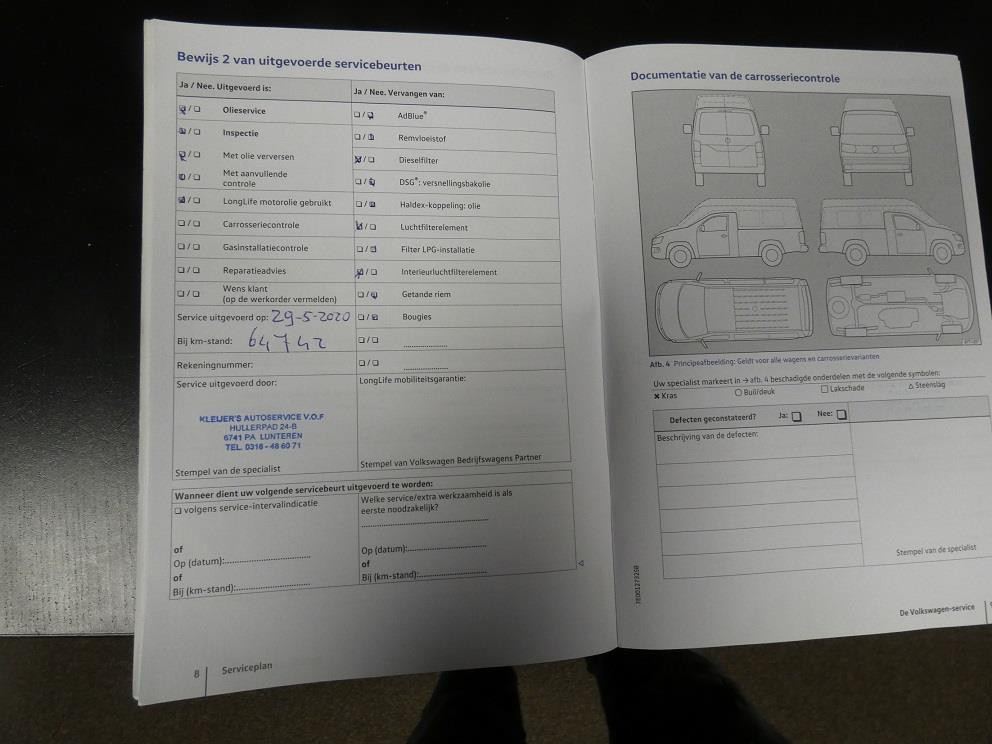 Bewijs 2 van uitgevoerde servicebeurten
Ja / Nee. Uitgevoerd is:
❏ / ❏ Olieservice
❏ / ❏ Inspectie
❏ / ❏ Met olie verversen
❏ / ❏ Met aanvullende
controle
❏ / ❏ LongLife motorolie gebruikt
❏ / ❏ Carrosseriecontrole
❏ / ❏ Gasinstallatiecontrole
❏ / ❏ Reparatieadvies
❏ / ❏ Wens klant
(op de werkorder vermelden)
Service uitgevoerd op: 29-5-2020
Bij km-stand: 64742
Rekeningnummer:
Service uitgevoerd door:
KLEIJER'S AUTOSERVICE V.O.F
HULLERPAD 24-B
6741 PA LUNTEREN
TEL. 0318 - 48 60 71
Stempel van de specialist
Ja / Nee. Vervangen van:
❏ / ❏ AdBlue®
❏ / ❏ Remvloeistof
❏ / ❏ Dieselfilter
❏ / ❏ DSG®: versnellingsbakolie
❏ / ❏ Haldex-koppeling: olie
❏ / ❏ Luchtfilterelement
❏ / ❏ Filter LPG-installatie
❏ / ❏ Interieurluchtfilterelement
❏ / ❏ Getande riem
❏ / ❏ Bougies
❏ / ❏ ....................
❏ / ❏ ....................
LongLife mobiliteitsgarantie:
Stempel van Volkswagen Bedrijfswagens Partner
Wanneer dient uw volgende servicebeurt uitgevoerd te worden:
❏ volgens service-intervalindicatie
of
Op (datum):..............................
of
Bij (km-stand):..............................
Welke service/extra werkzaamheid is als
eerste noodzakelijk?
..................................................
Op (datum):..............................
of
Bij (km-stand):..............................
8 Serviceplan
Documentatie van de carrosseriecontrole
Afb. 4 Principeafbeelding: Geldt voor alle wagens en carrosserievarianten
Uw specialist markeert in → afb. 4 beschadigde onderdelen met de volgende symbolen:
✖ Kras ○ Buil/deuk □ Lakschade △ Steenslag
Defecten geconstateerd? Ja: ❏ Nee: ❏
Beschrijving van de defecten:
Stempel van de specialist
De Volkswagen-service